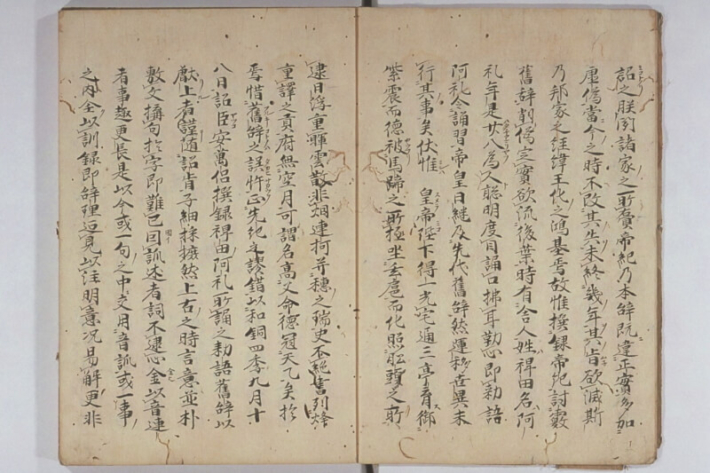 詔之朕聞諸家之所賷帝紀乃本辞既違正實多加
虚偽當今之時不改其失未終幾年其旨欲滅斯
乃邦家之経緯王化之鴻基焉故惟撰録帝紀討覈
舊辞削偽定實欲流後葉時有舎人姓稗田名阿
礼年是廿八為人聡明度目誦口拂耳勤心即勅語
阿礼令誦習帝皇日継及先代舊辞然運移世異未
行其事矣伏惟 皇帝陛下得一光宅通三亭育御
紫震而徳被馬蹄之所極坐玄扈而化照舩頭之所
逮日浮重暉雲散非烟連柯并穂之瑞史不絶書列烽
重譯之貢府無空月可謂名高文命徳冠天乙矣於
焉惜舊辞之誤忤正先紀之謬錯以和銅四季九月十
八日詔臣安萬侶撰録稗田阿礼所誦之勅語舊辞以
獻上者謹随詔旨子細採摭然上古之時言意並朴
敷文構句於字即難已因訓述者詞不逮心全以音連
者事趣更長是以今或一句之中交用音訓或一事
之内全以訓録即辞理叵見以注明意况易解更非